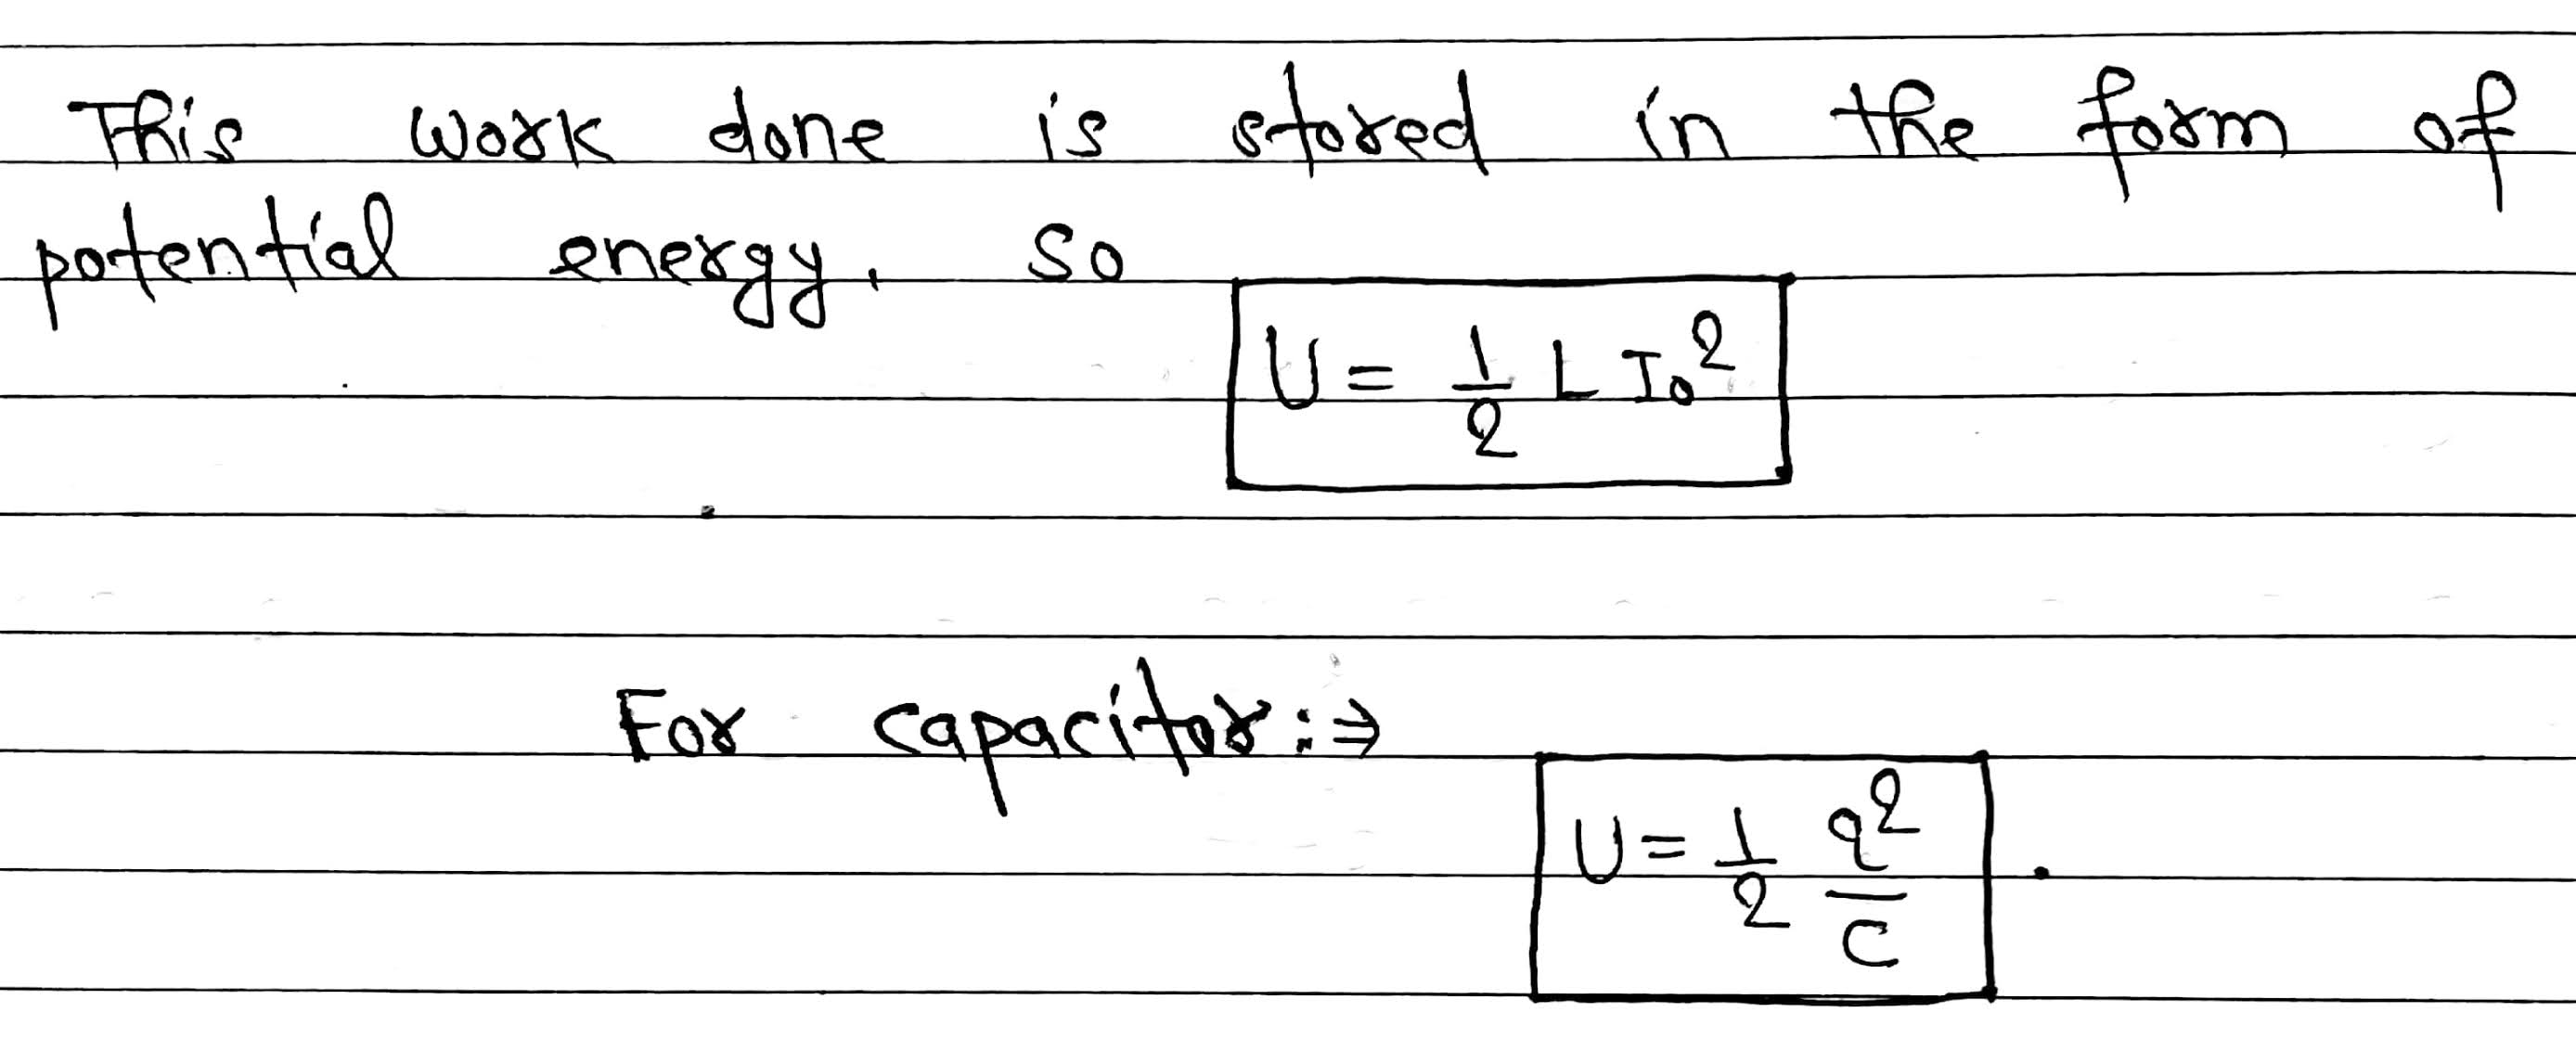 This work done is stored in the form of
potential energy, so
U = 1/2 L I₀²
For capacitor :⇒
U = 1/2 q²/C .